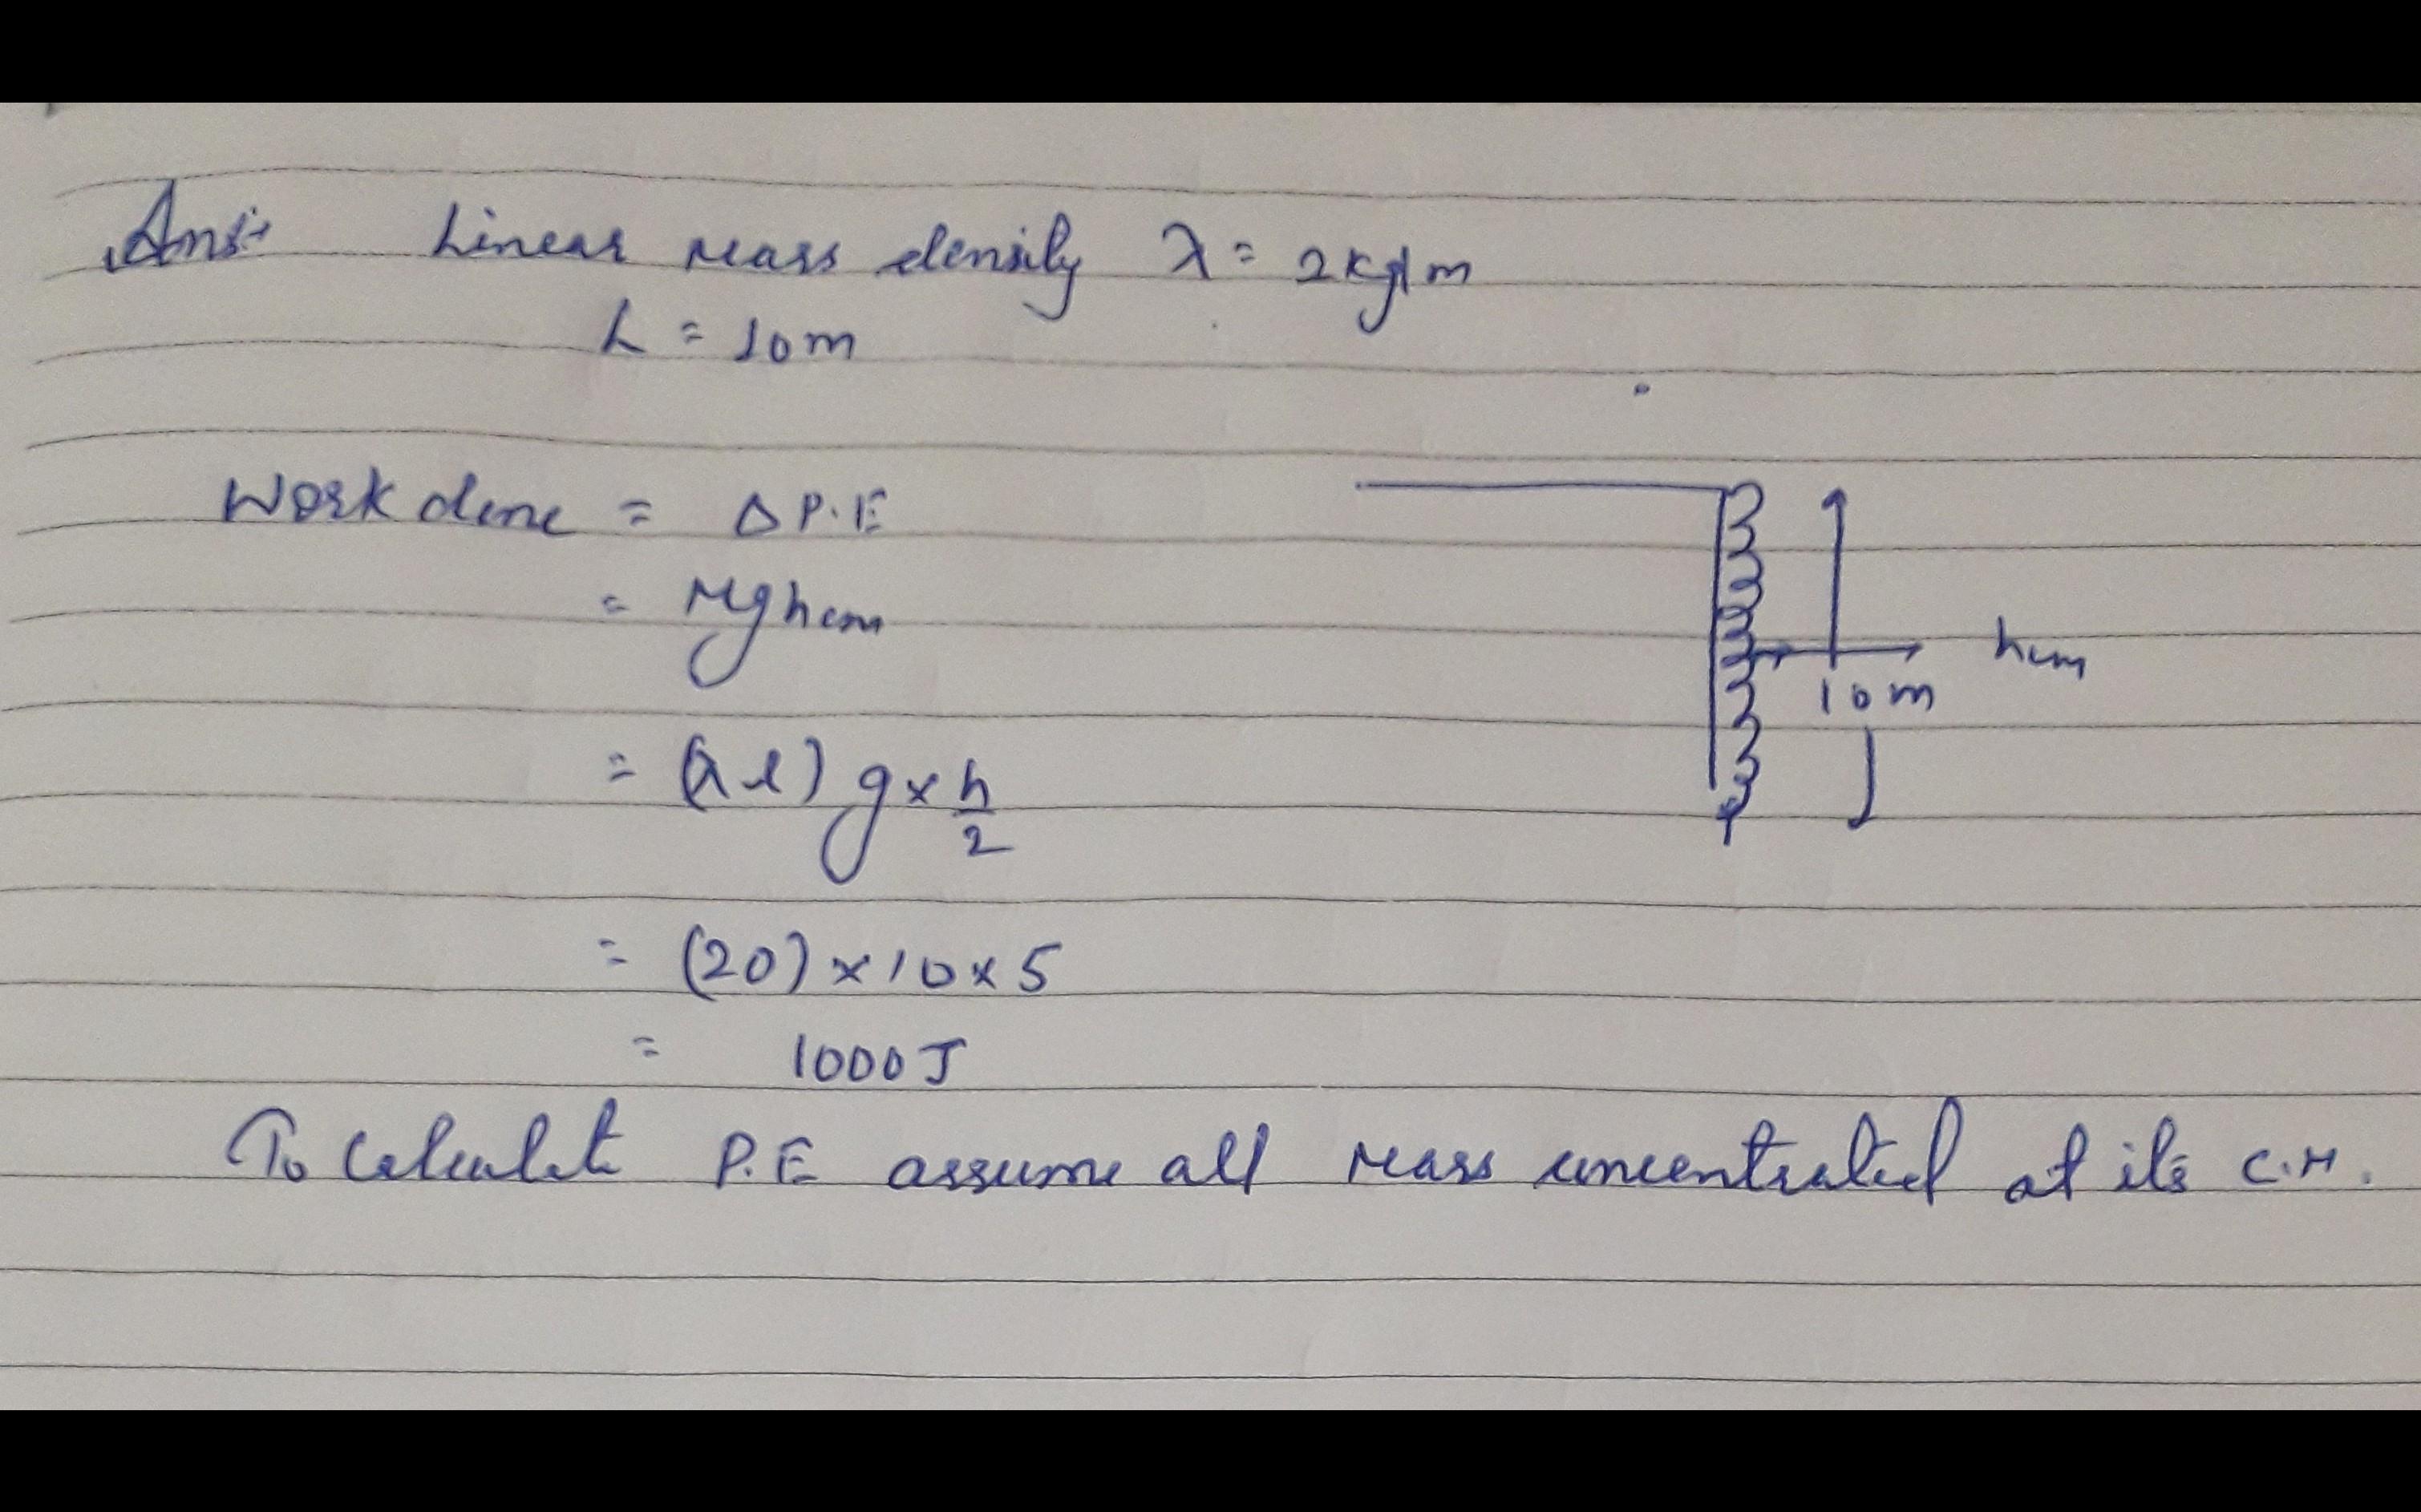 Ans:- Linear mass density λ = 2kg/m
L = 10m
Work done = Δ P.E
= Mghcm
hcm
10m
= (λl) g × h/2
= (20) × 10 × 5
= 1000J
To Calculate P.E assume all mass concentrated at its C.M.